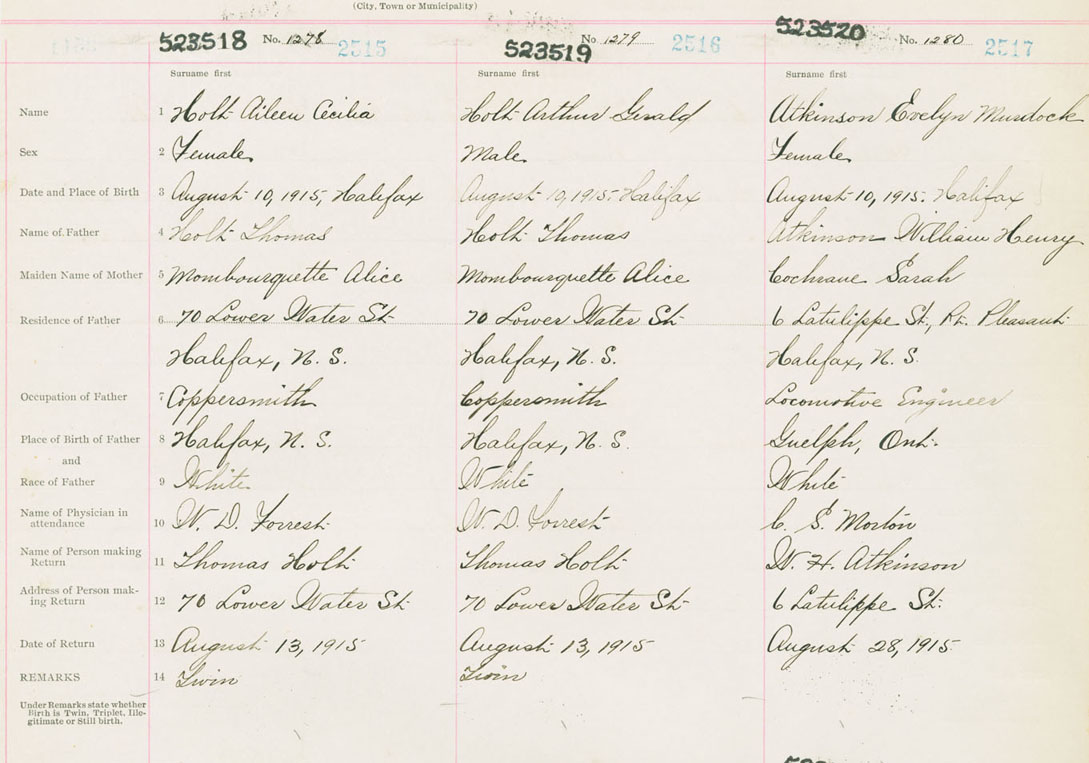 (City, Town or Municipality)
523518 No. 1278 2515 523519 No 1279 2516 523520 No. 1280 2517
Surname first Surname first Surname first
Name 1 Holt Aileen Cecilia Holt Arthur Gerald Atkinson Evelyn Murdock
Sex 2 Female Male Female
Date and Place of Birth 3 August 10, 1915, Halifax August 10, 1915, Halifax August 10, 1915. Halifax
Name of Father 4 Holt Thomas Holt Thomas Atkinson William Henry
Maiden Name of Mother 5 Mombourquette Alice Mombourquette Alice Cochrane Sarah
Residence of Father 6 70 Lower Water St 70 Lower Water St 6 Latulippe St., Pt. Pleasant
Halifax, N. S. Halifax, N. S. Halifax, N. S.
Occupation of Father 7 Coppersmith Coppersmith Locomotive Engineer
Place of Birth of Father 8 Halifax, N. S. Halifax, N. S. Guelph, Ont.
and
Race of Father 9 White White White
Name of Physician in attendance 10 W. D. Forrest W. D. Forrest C. S. Morton
Name of Person making Return 11 Thomas Holt Thomas Holt W. H. Atkinson
Address of Person making Return 12 70 Lower Water St 70 Lower Water St 6 Latulippe St.
Date of Return 13 August 13, 1915 August 13, 1915 August 28, 1915
REMARKS 14 Twin Twin
Under Remarks state whether
Birth is Twin, Triplet, Ille-
gitimate or Still birth.